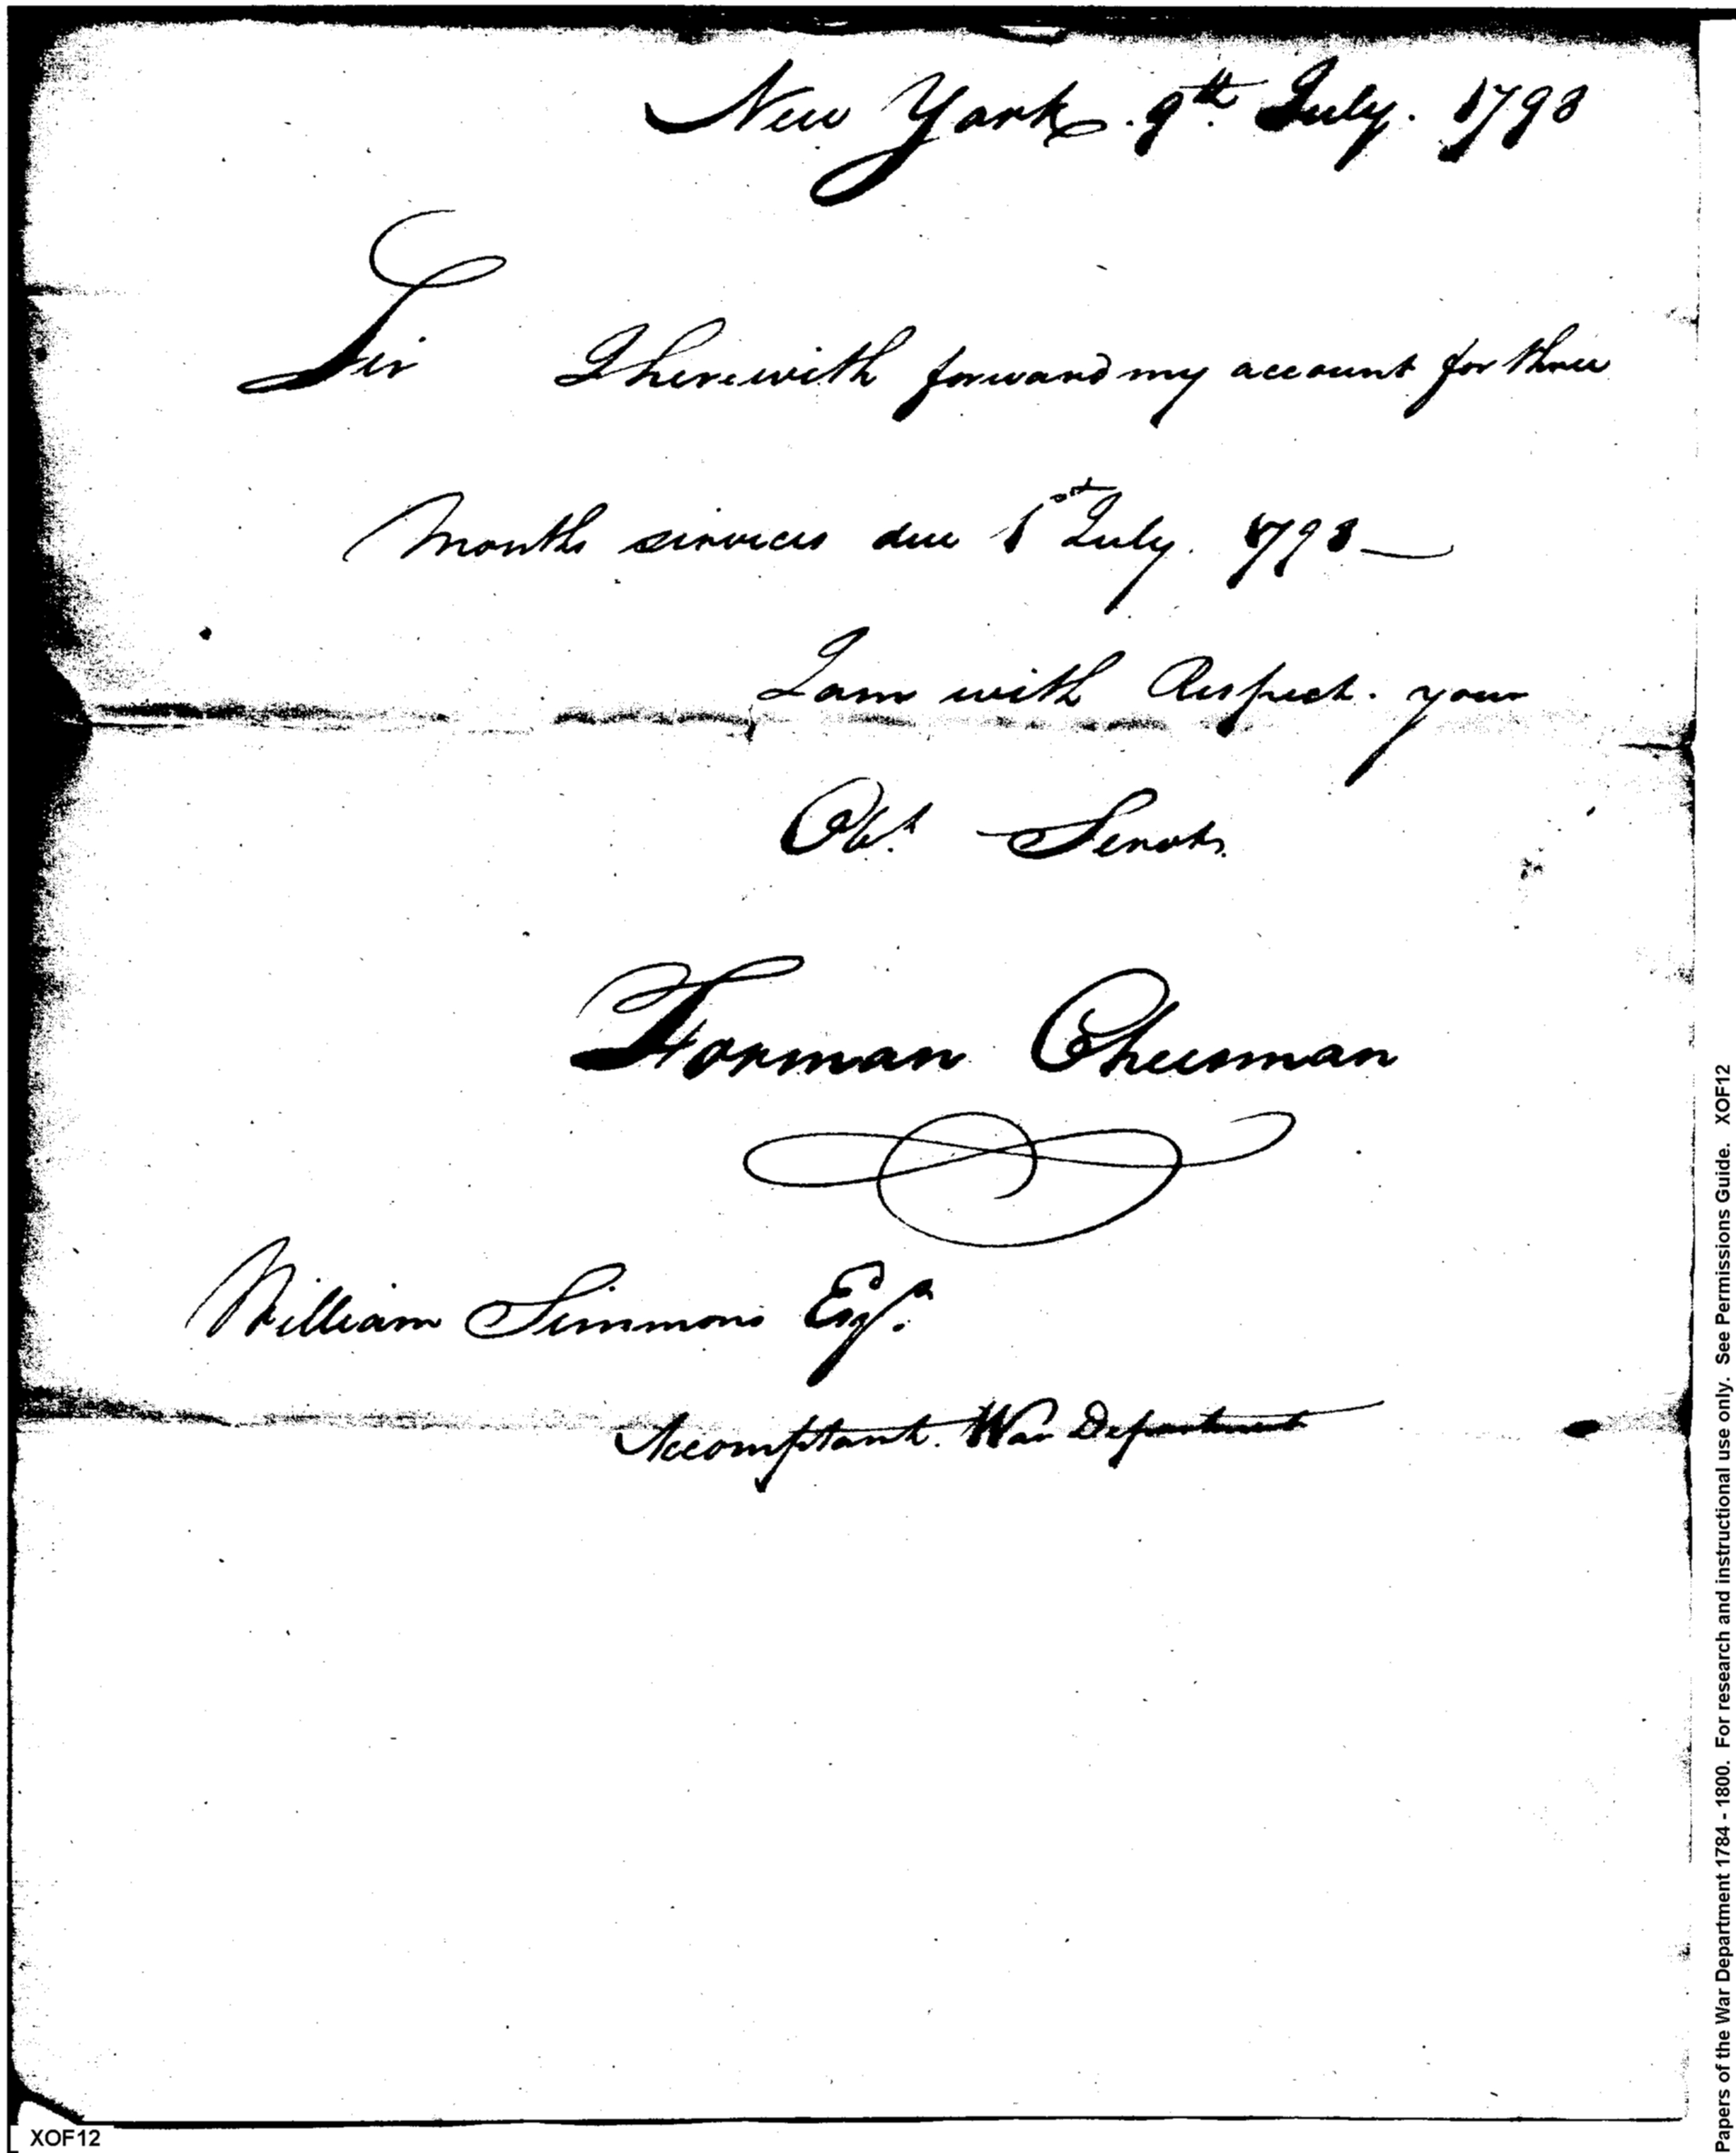 New York. 9th July. 1798
Sir I herewith forward my account for three
Months services due 1st July. 1798—
I am with Respect. your
Obt. Servt.
Forman Cheesman
William Simmons Esqr.
Accomptant. War Department
Papers of the War Department 1784 - 1800. For research and instructional use only. See Permissions Guide. XOF12
XOF12